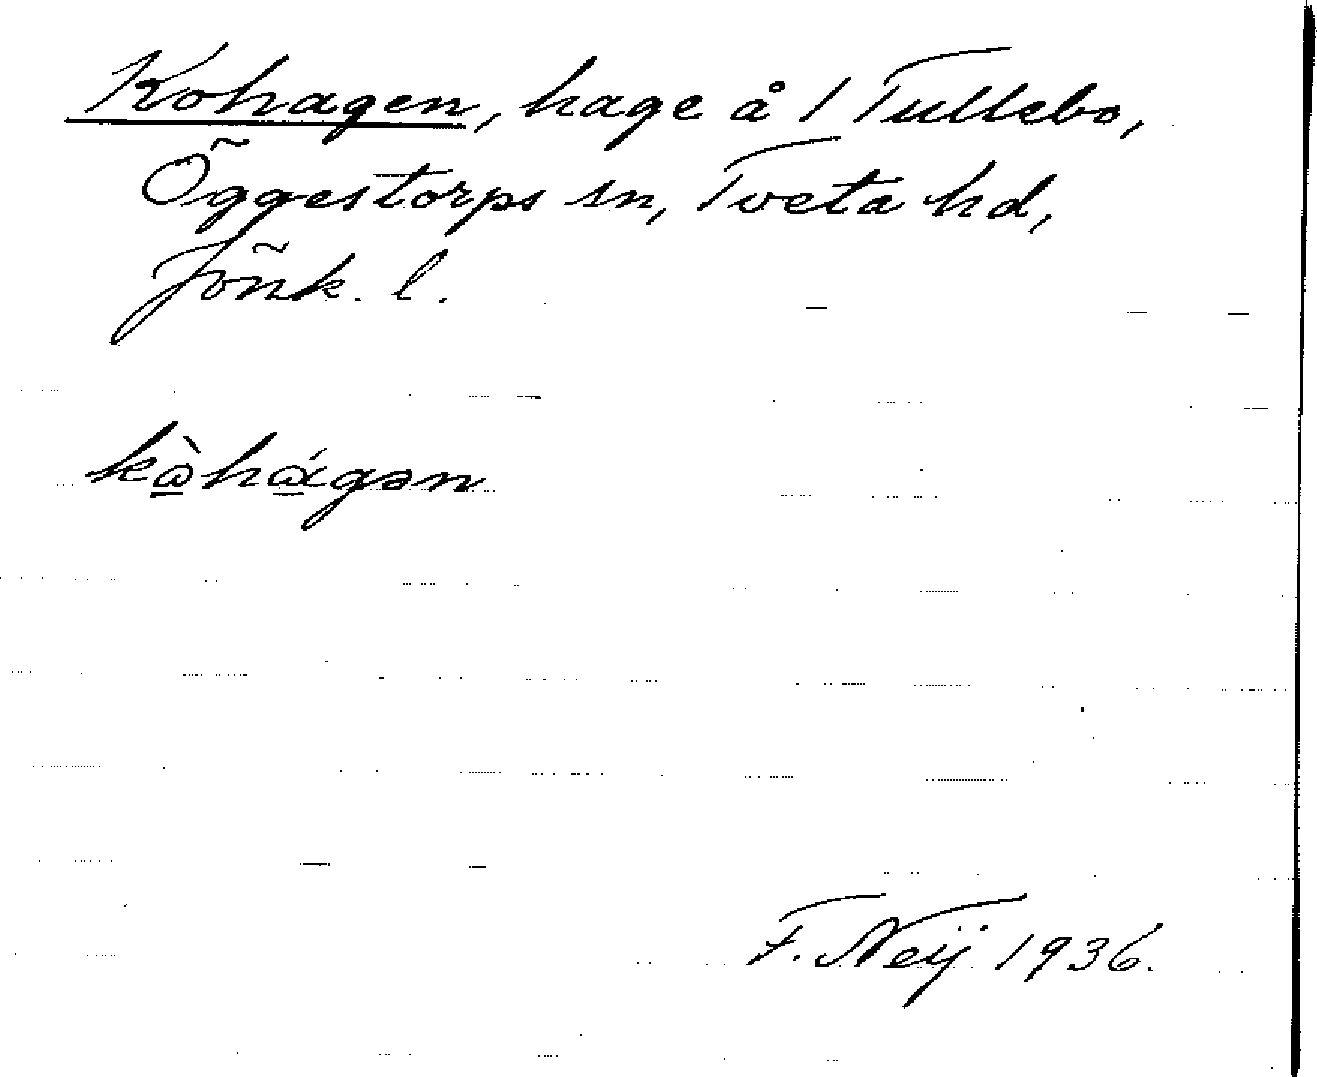 Kohagen, hage å 1 Tullebo,
Öggestorps sn, Tveta hd,
Jönk. l.
F. Neij 1936.